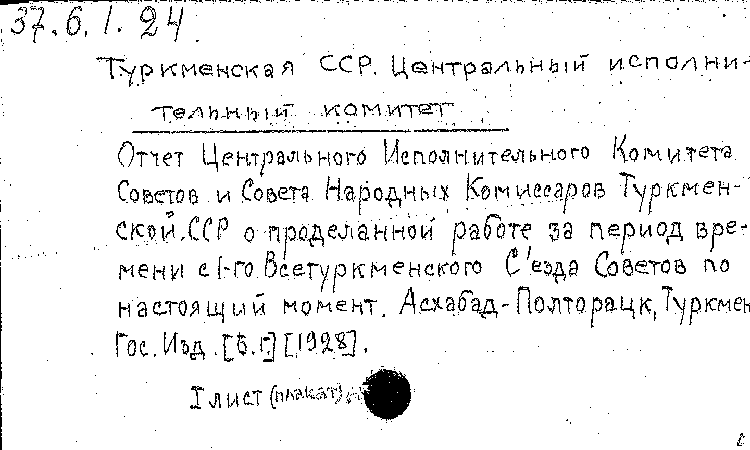 37.6.1.24
Туркменская ССР. Центральный исполни-
тельный комитет
Отчет Центрального Исполнительного Комитета
Советов и Совета Народных Комиссаров Туркмен-
ской ССР о проделанной работе за период вре-
мени с 1-го Всетуркменского С'езда Советов по
настоящий момент. Асхабад-Полторацк, Туркмен
Гос. Изд. [б.г.] [1928].
1 лист (плакат)